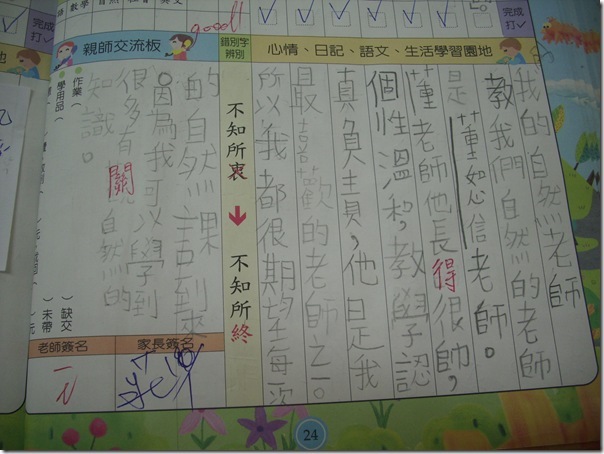 數學
自然
社會
英文
完成
打✓
good!!
親師交流板
錯別字
辨別
心情、日記、語文、生活學習園地
完成
打✓
我的自然老師
教我們自然的老師
是董恕信老師。
董老師他長得很帥，
個性溫和，教學認
真負責，他是我
最喜歡的老師之一。
所以我都很期望每一次
不知所衷
不知所終
的自然課到來
因為我可以學到
很多有關自然的
知識。
作業（
學用品（
）缺交
）未帶
老師簽名
家長簽名
24